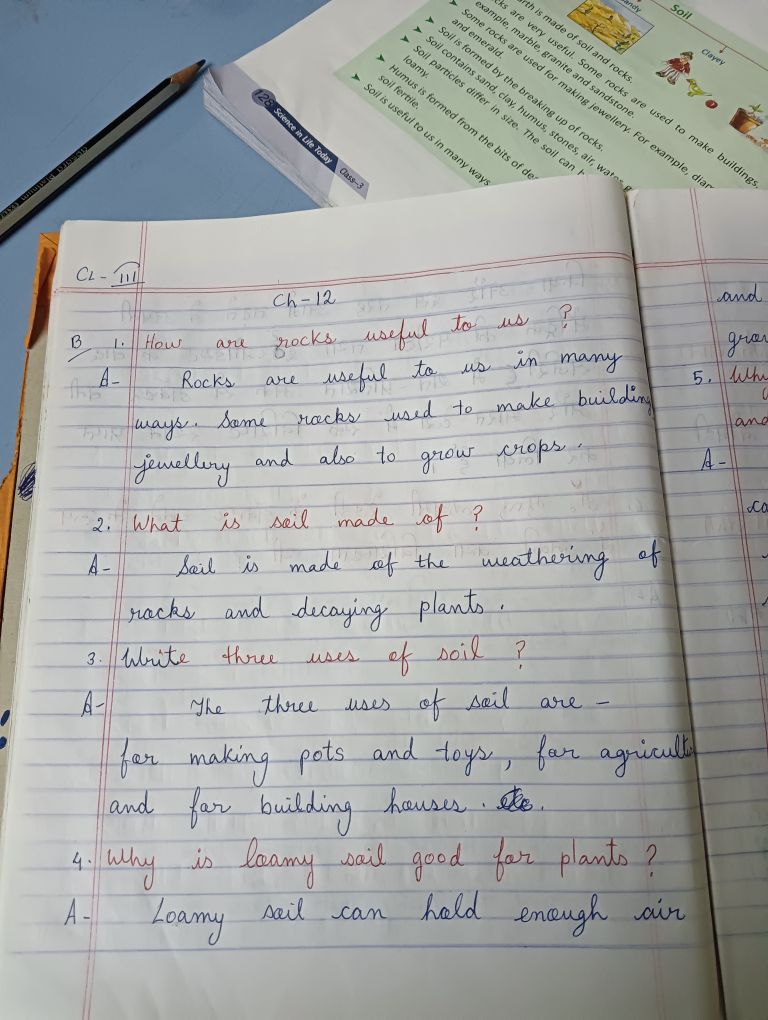 Soil
Clayey
andy
rth is made of soil and rocks.
cks are very useful. Some rocks are used to make buildings.
example, marble, granite and sandstone.
Some rocks are used for making jewellery. For example, diam
and emerald.
Soil is formed by the breaking up of rocks.
Soil contains sand, clay, humus, stones, air, water
Soil particles differ in size. The soil can
loamy.
Humus is formed from the bits of de
soil fertile.
Soil is useful to us in many ways
125 Science in Life Today Class-3
CL - III
Ch - 12
B 1. How are rocks useful to us ?
A- Rocks are useful to us in many
ways. Some rocks used to make building
jewellery and also to grow crops.
2. What is soil made of ?
A- Soil is made of the weathering of
rocks and decaying plants.
3. Write three uses of soil ?
A- The three uses of soil are -
for making pots and toys, for agricult
and for building houses.
4. Why is loamy soil good for plants ?
A- Loamy soil can hold enough air
and
grow
5. Why
and
A-
ca